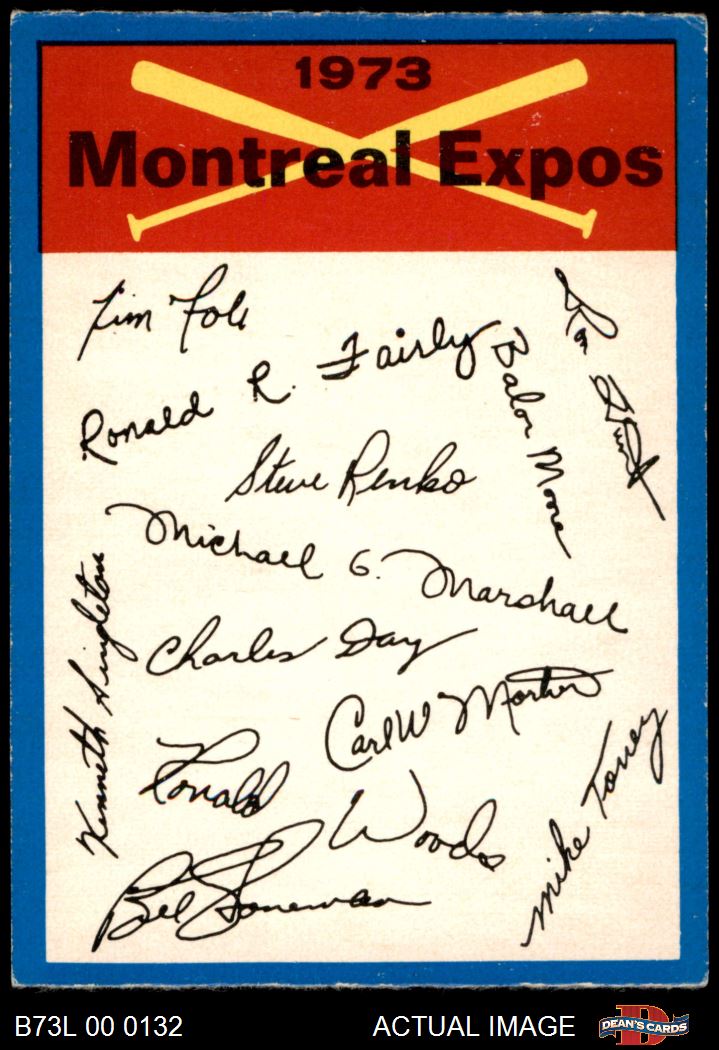 1973
Montreal Expos
Tim Foli
Ronald R. Fairly
Balor Moore
Steve Renko
Michael G. Marshall
Kenneth Singleton
Charles Day
Carl W Morton
Ronald Woods
Mike Torrez
Bill Stoneman
B73L 00 0132
ACTUAL IMAGE
DEAN'S CARDS